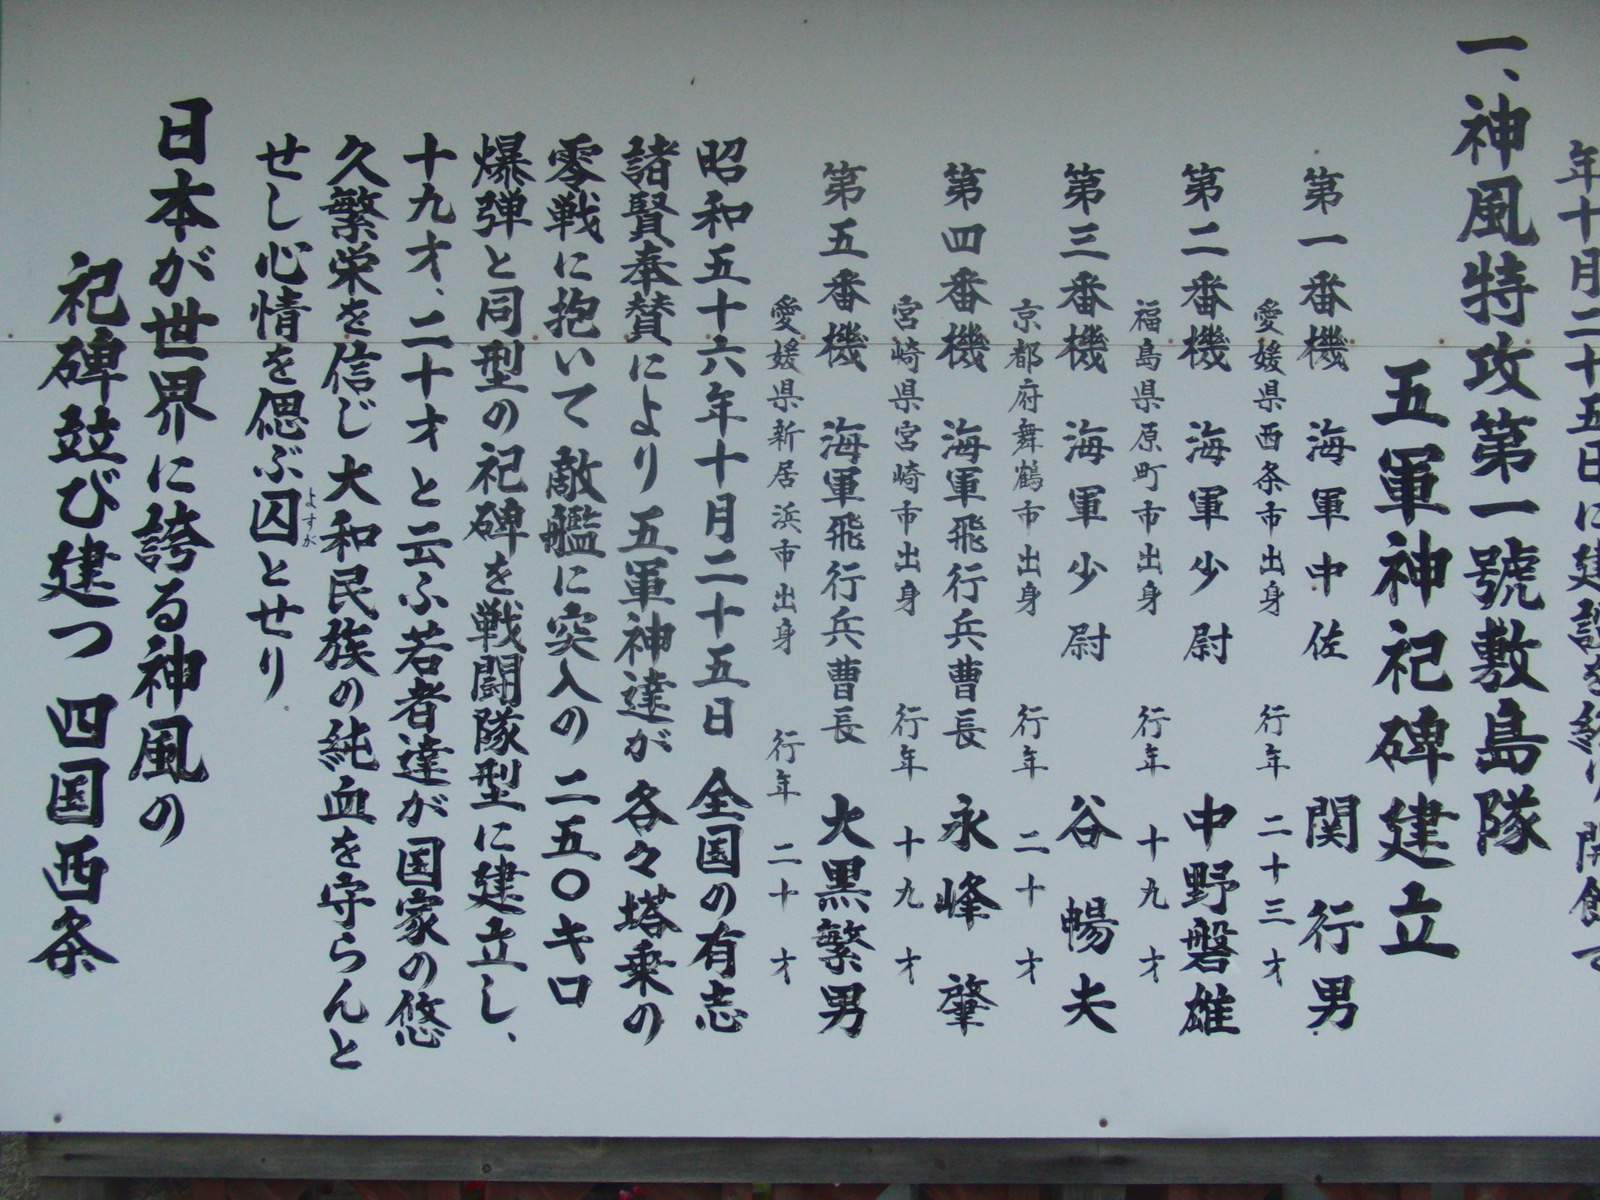 年十月二十五日に建設を終り開館て
一、神風特攻第一號敷島隊
五軍神祀碑建立
第一番機 海軍中佐 関行男
愛媛県西条市出身 行年 二十三才
第二番機 海軍少尉 中野磐雄
福島県原町市出身 行年 十九才
第三番機 海軍少尉 谷暢夫
京都府舞鶴市出身 行年 二十才
第四番機 海軍飛行兵曹長 永峰肇
宮崎県宮崎市出身 行年 十九才
第五番機 海軍飛行兵曹長 大黒繁男
愛媛県新居浜市出身 行年 二十才
昭和五十六年十月二十五日 全国の有志
諸賢奉賛により 五軍神達が 各々塔乗の
零戦に抱いて 敵艦に突入の 二五〇キロ
爆弾と同型の祀碑を戦闘隊型に建立し、
十九才、二十才と云ふ若者達が国家の悠
久繁栄を信じ 大和民族の純血を守らんと
せし心情を偲ぶ囚とせり
よすが
日本が世界に誇る神風の
祀碑竝び建つ 四国西条